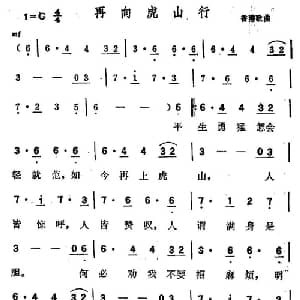 再向虎山行
1=G 4/4
香港歌曲
mf
(6· 6· 4 4 32 3· 6· 6· 4 32
3 — — 03 7· 1· 7· 3· 6 — — —
7· 3· 2 5· 6 — — 6) 6· 6· 4 4 32
平 生 勇 猛 怎会
3· 6· 6· 4 4 32 1 — — 03
轻就范,如 今 再 上 虎 山, 人
7· 1 7· 3 6 — — 03 7· 1· 7· 3·
皆 惊 呼,人 皆 赞 叹,人 谓 满 身 是
3 — — 03 6· 6· 4 4 32 3· 6· 6·
胆。 何 必 劝 我 不 要 招 麻 烦,明